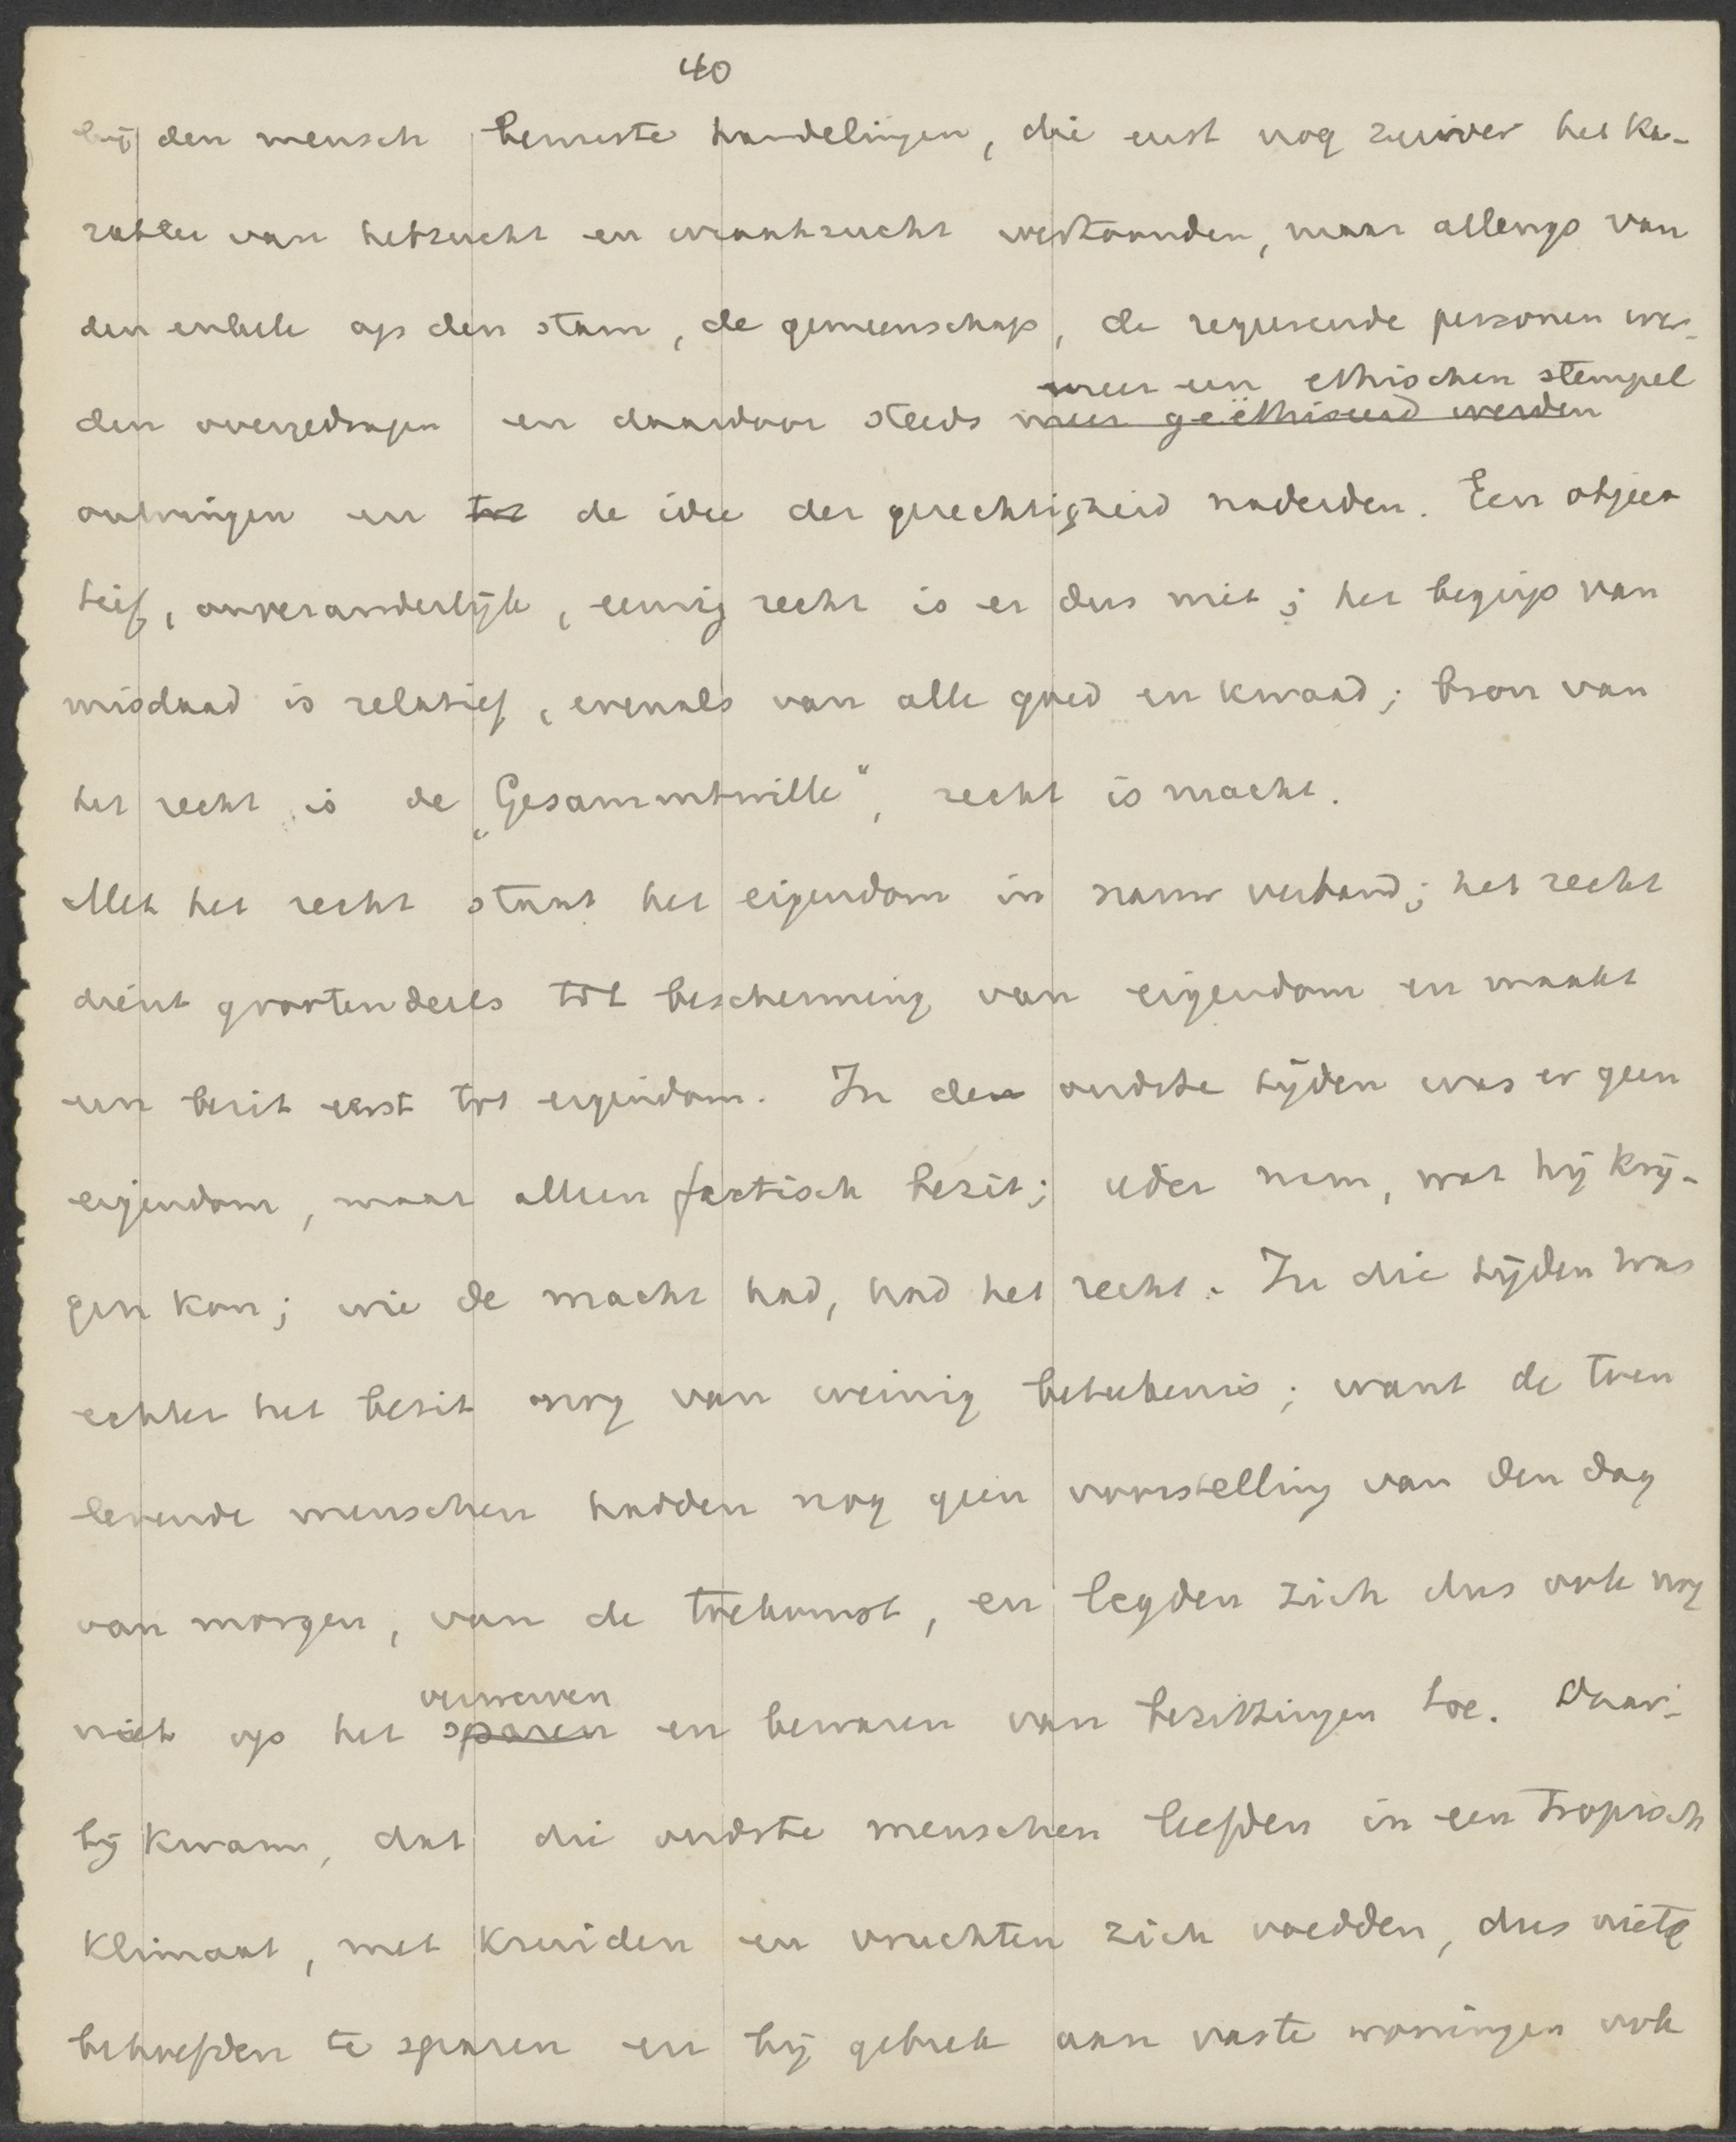 40
bij den mensch bewuste handelingen, die eerst nog zuiver het ka-
rakter van hebzucht en wraakzucht vertoonden, maar allengs van
den enkele op den stam, de gemeenschap, de regeerende personen wer-
meer een ethischen stempel
den overgedragen en daardoor steeds meer geëthiseerd werden
ontvingen en tot de idee der gerechtigheid naderden. Een objec
tief, onveranderlijk, eeuwig recht is er dus niet; het begrip van
misdaad is relatief, evenals van alle goed en kwaad; bron van
het recht is de „Gesammtwille“, recht is macht.
Met het recht staat het eigendom in nauw verband; het recht
dient grootendeels tot bescherming van eigendom en maakt
een bezit eerst tot eigendom. In de oudste tijden was er geen
eigendom, maar alleen factisch bezit; ieder nam, wat hij krij-
gen kon; wie de macht had, had het recht. In die tijden was
echter het bezit nog van weinig beteekenis; want de toen
levende menschen hadden nog geen voorstelling van den dag
van morgen, van de toekomst, en legden zich dus ook nog
verwerven
niet op het sparen en bewaren van bezittingen toe. Daar-
bij kwam, dat die oudste menschen leefden in een tropisch
klimaat, met kruiden en vruchten zich voedden, dus niets
behoefden te sparen en bij gebrek aan vaste woningen ook